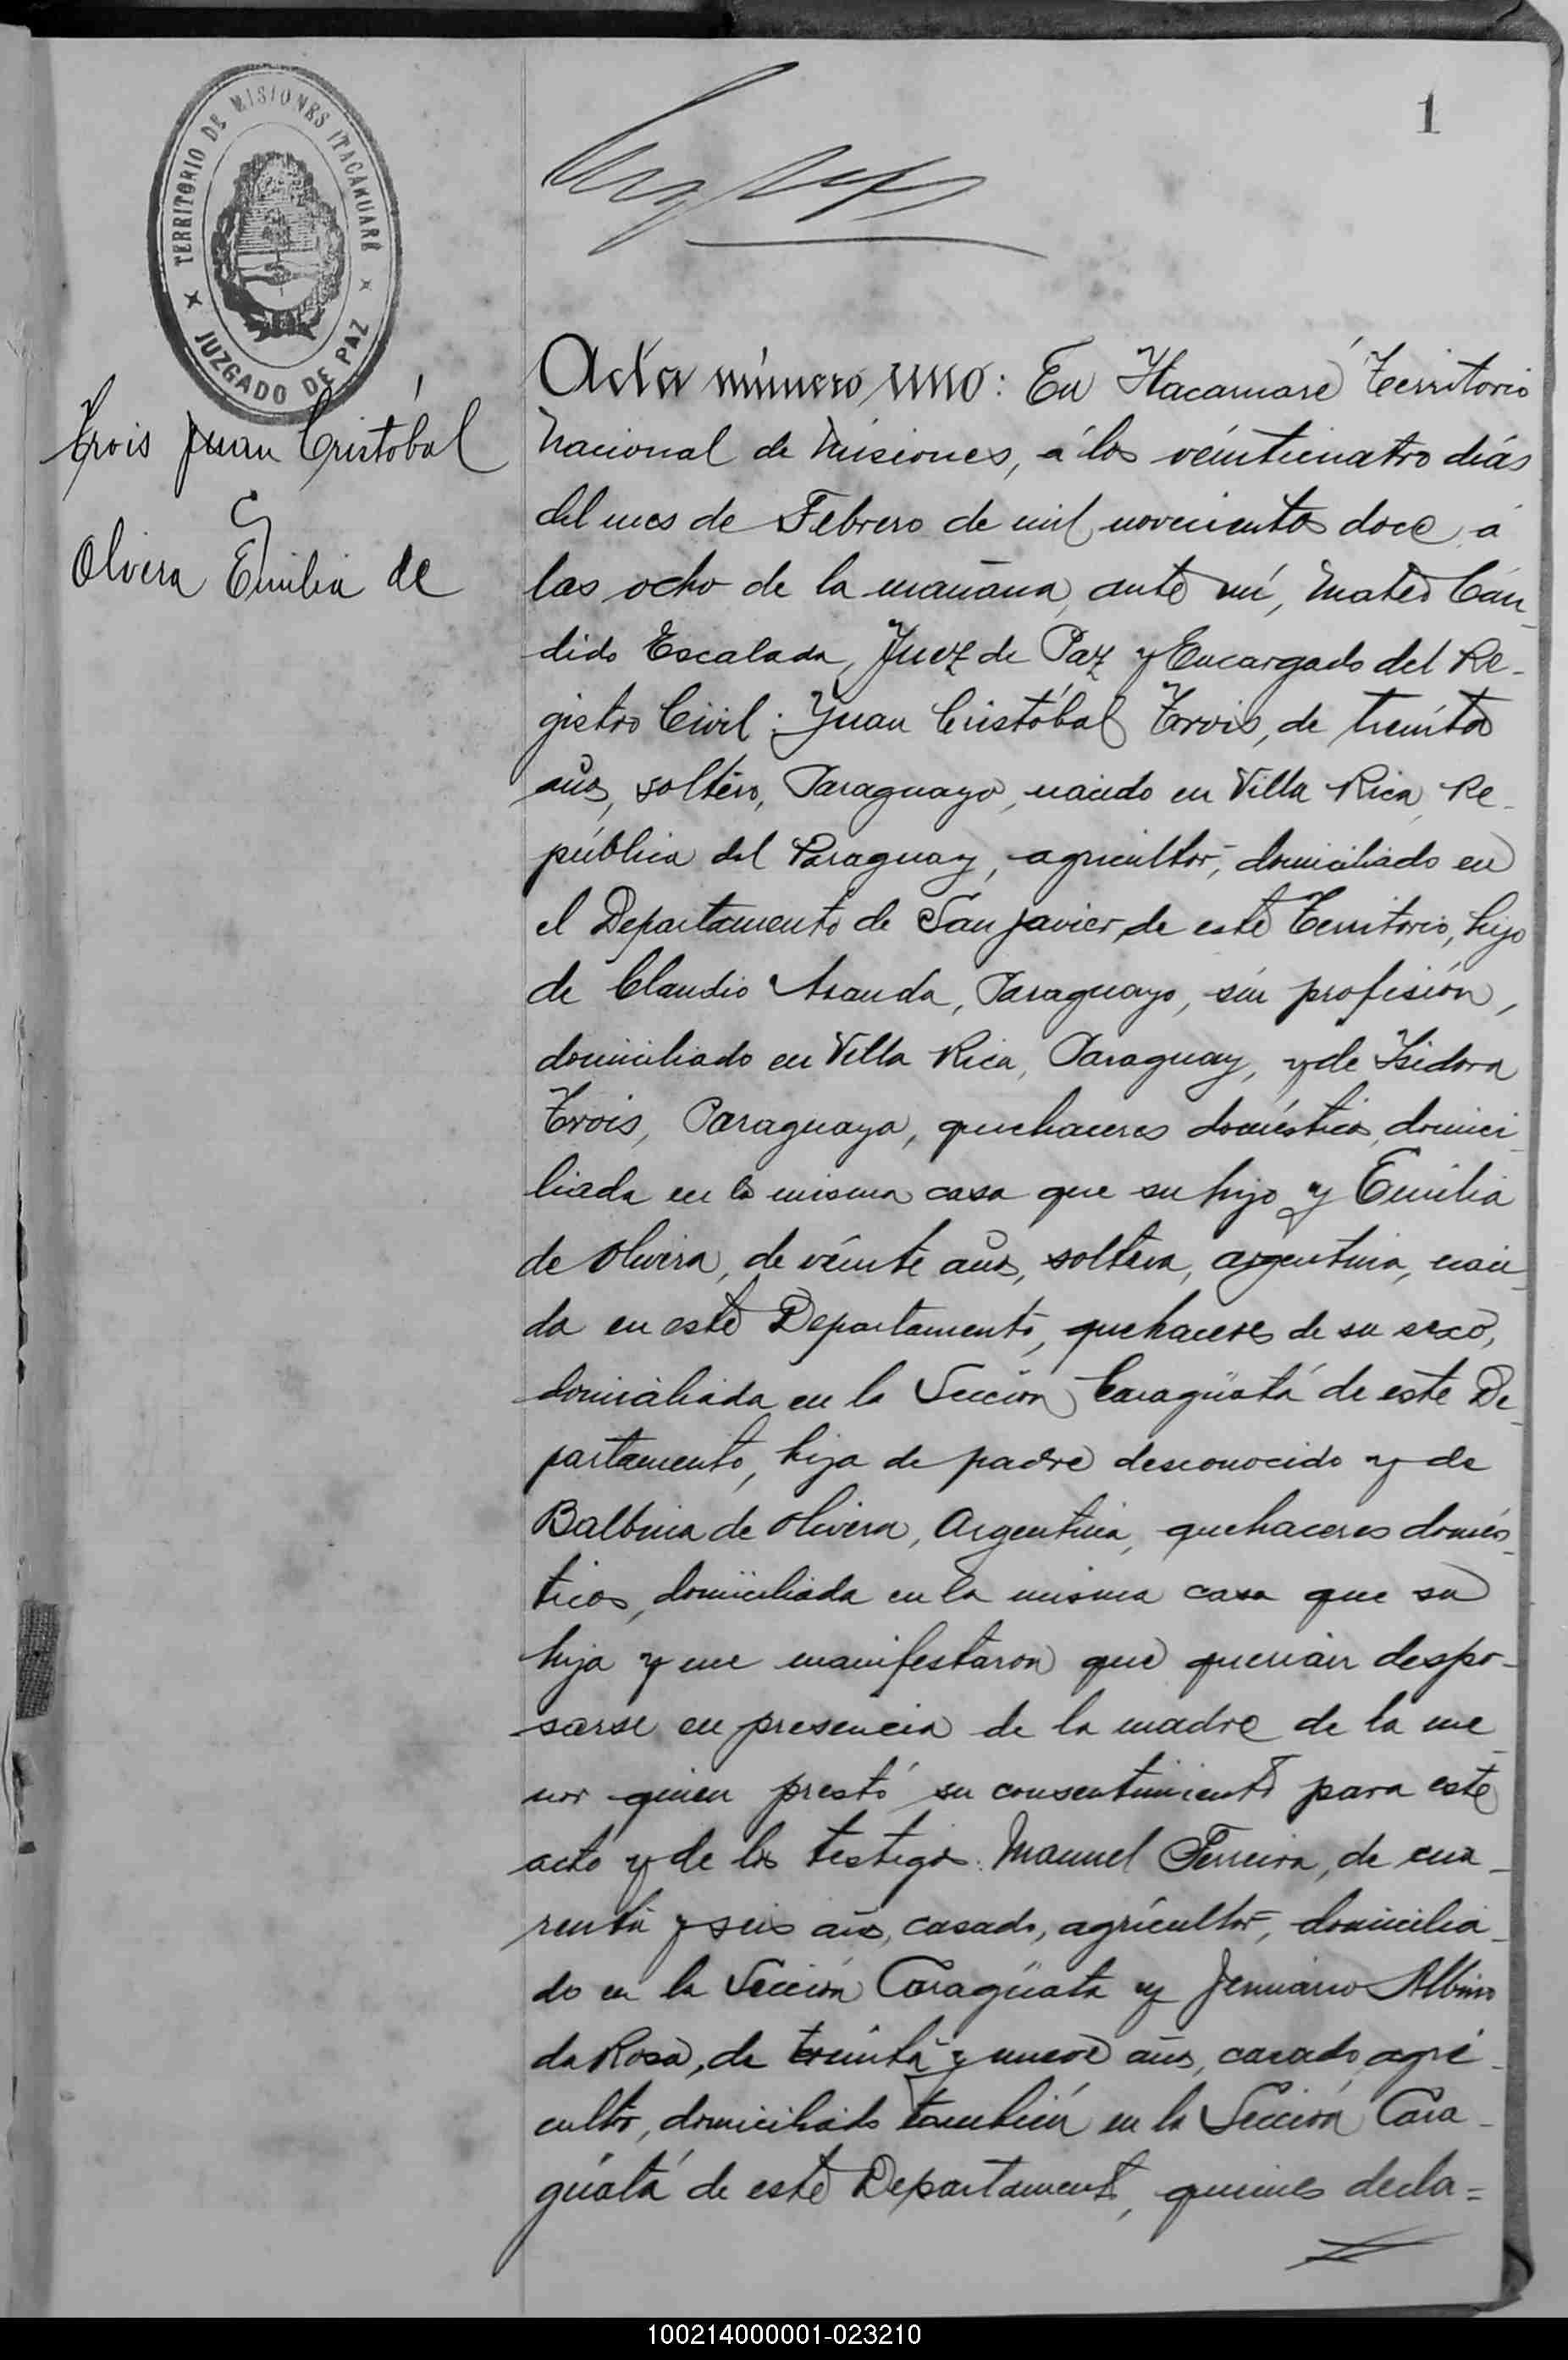 TERRITORIO DE MISIONES ITACARUARÉ
JUZGADO DE PAZ
1
Trois Juan Cristóbal
y
Olivera Emilia de
Acta número uno: En Itacaruaré Territorio
Nacional de Misiones, á los veinticuatro días
del mes de Febrero de mil novecientos doce á
las ocho de la mañana, ante mí, Mateo Cán-
dido Escalada, Juez de Paz y Encargado del Re-
gistro Civil: Juan Cristóbal Trois, de treinta
años, soltero, Paraguayo, nacido en Villa Rica, Re-
pública del Paraguay, agricultor, domiciliado en
el Departamento de San Javier, de este Territorio, hijo
de Claudio Aranda, Paraguayo, sin profisión,
domiciliado en Villa Rica, Paraguay, y de Isidora
Trois, Paraguaya, quehaceres domésticos, domici-
liada en la misma casa que su hijo y Emilia
de Olivera, de veinte años, soltera, argentina, naci-
da en este Departamento, quehaceres de su sexo,
domiciliada en la Sección Caragüatá de este De-
partamento, hija de padre desconocido y de
Balbina de Olivera, Argentina, quehaceres domés-
ticos, domiciliada en la misma casa que su
hija y me manifestaron que querían despo-
sarse en presencia de la madre de la me-
nor quien prestó su consentimiento para este
acto y de los testigos: Manuel Ferreira, de cua-
renta y seis años, casado, agricultor, domicilia-
do en la Sección Caragüata y Jenuario Albino
da Rosa, de treinta y nueve años, casado, agri-
cultor, domiciliado también en la Sección Cara-
güatá de este Departamento, quienes decla=
100214000001-023210